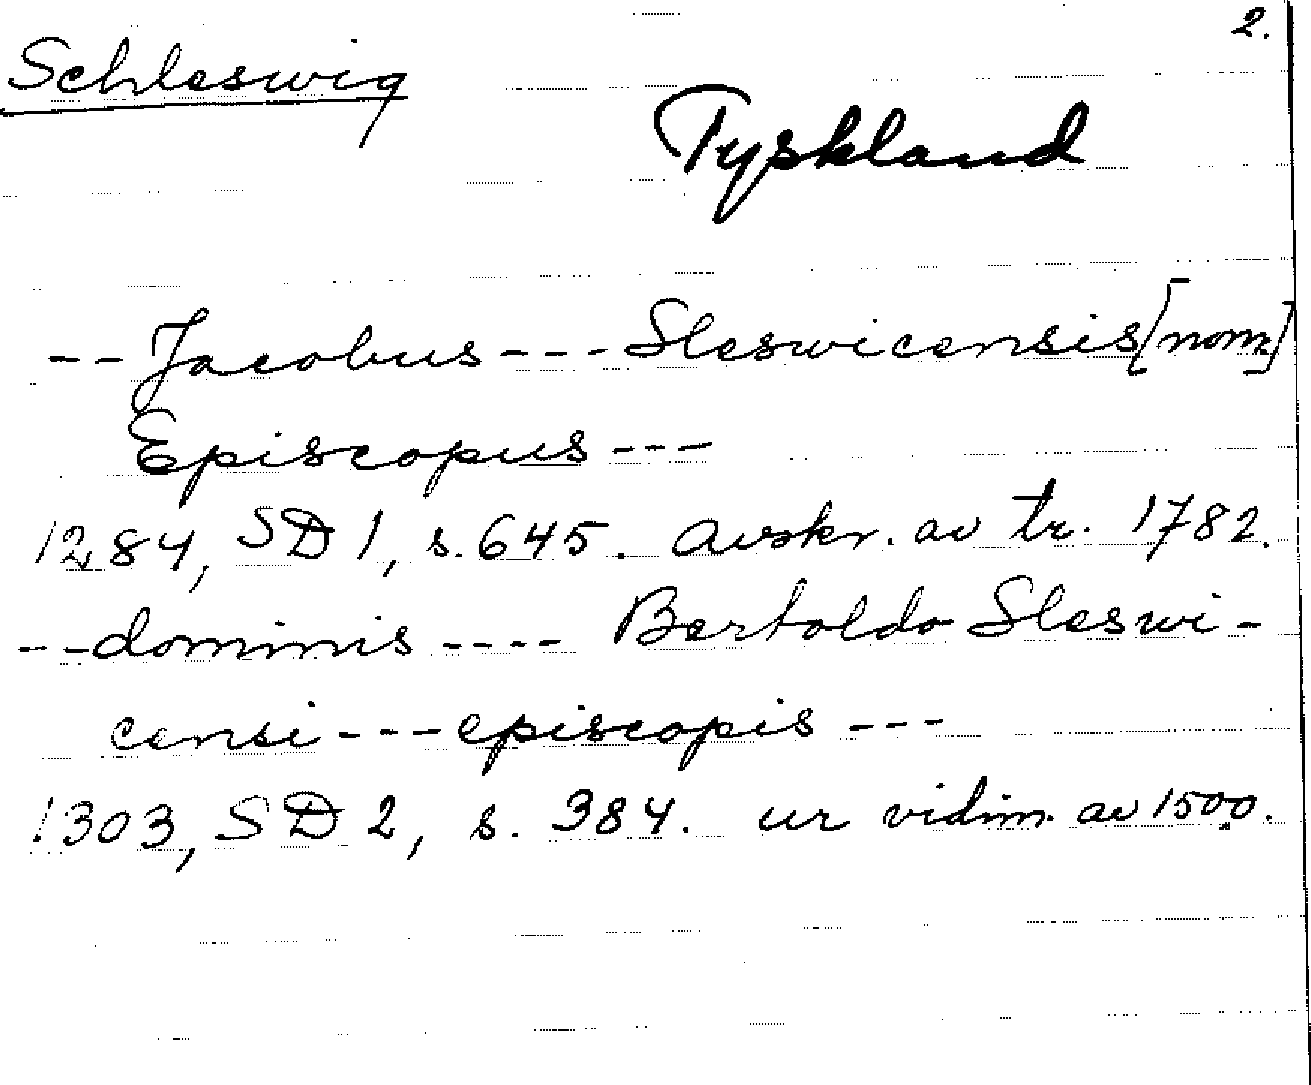 2.
Schleswig
Tyskland
-- Jacobus --- Sleswicensis [nom]
Episcopus ---
1284, SD 1, s. 645. avskr. av tr. 1782.
-- dominis ---- Bertoldo Sleswi-
censi --- episcopis ---
1303, SD 2, s. 384. ur vidim. av 1500.